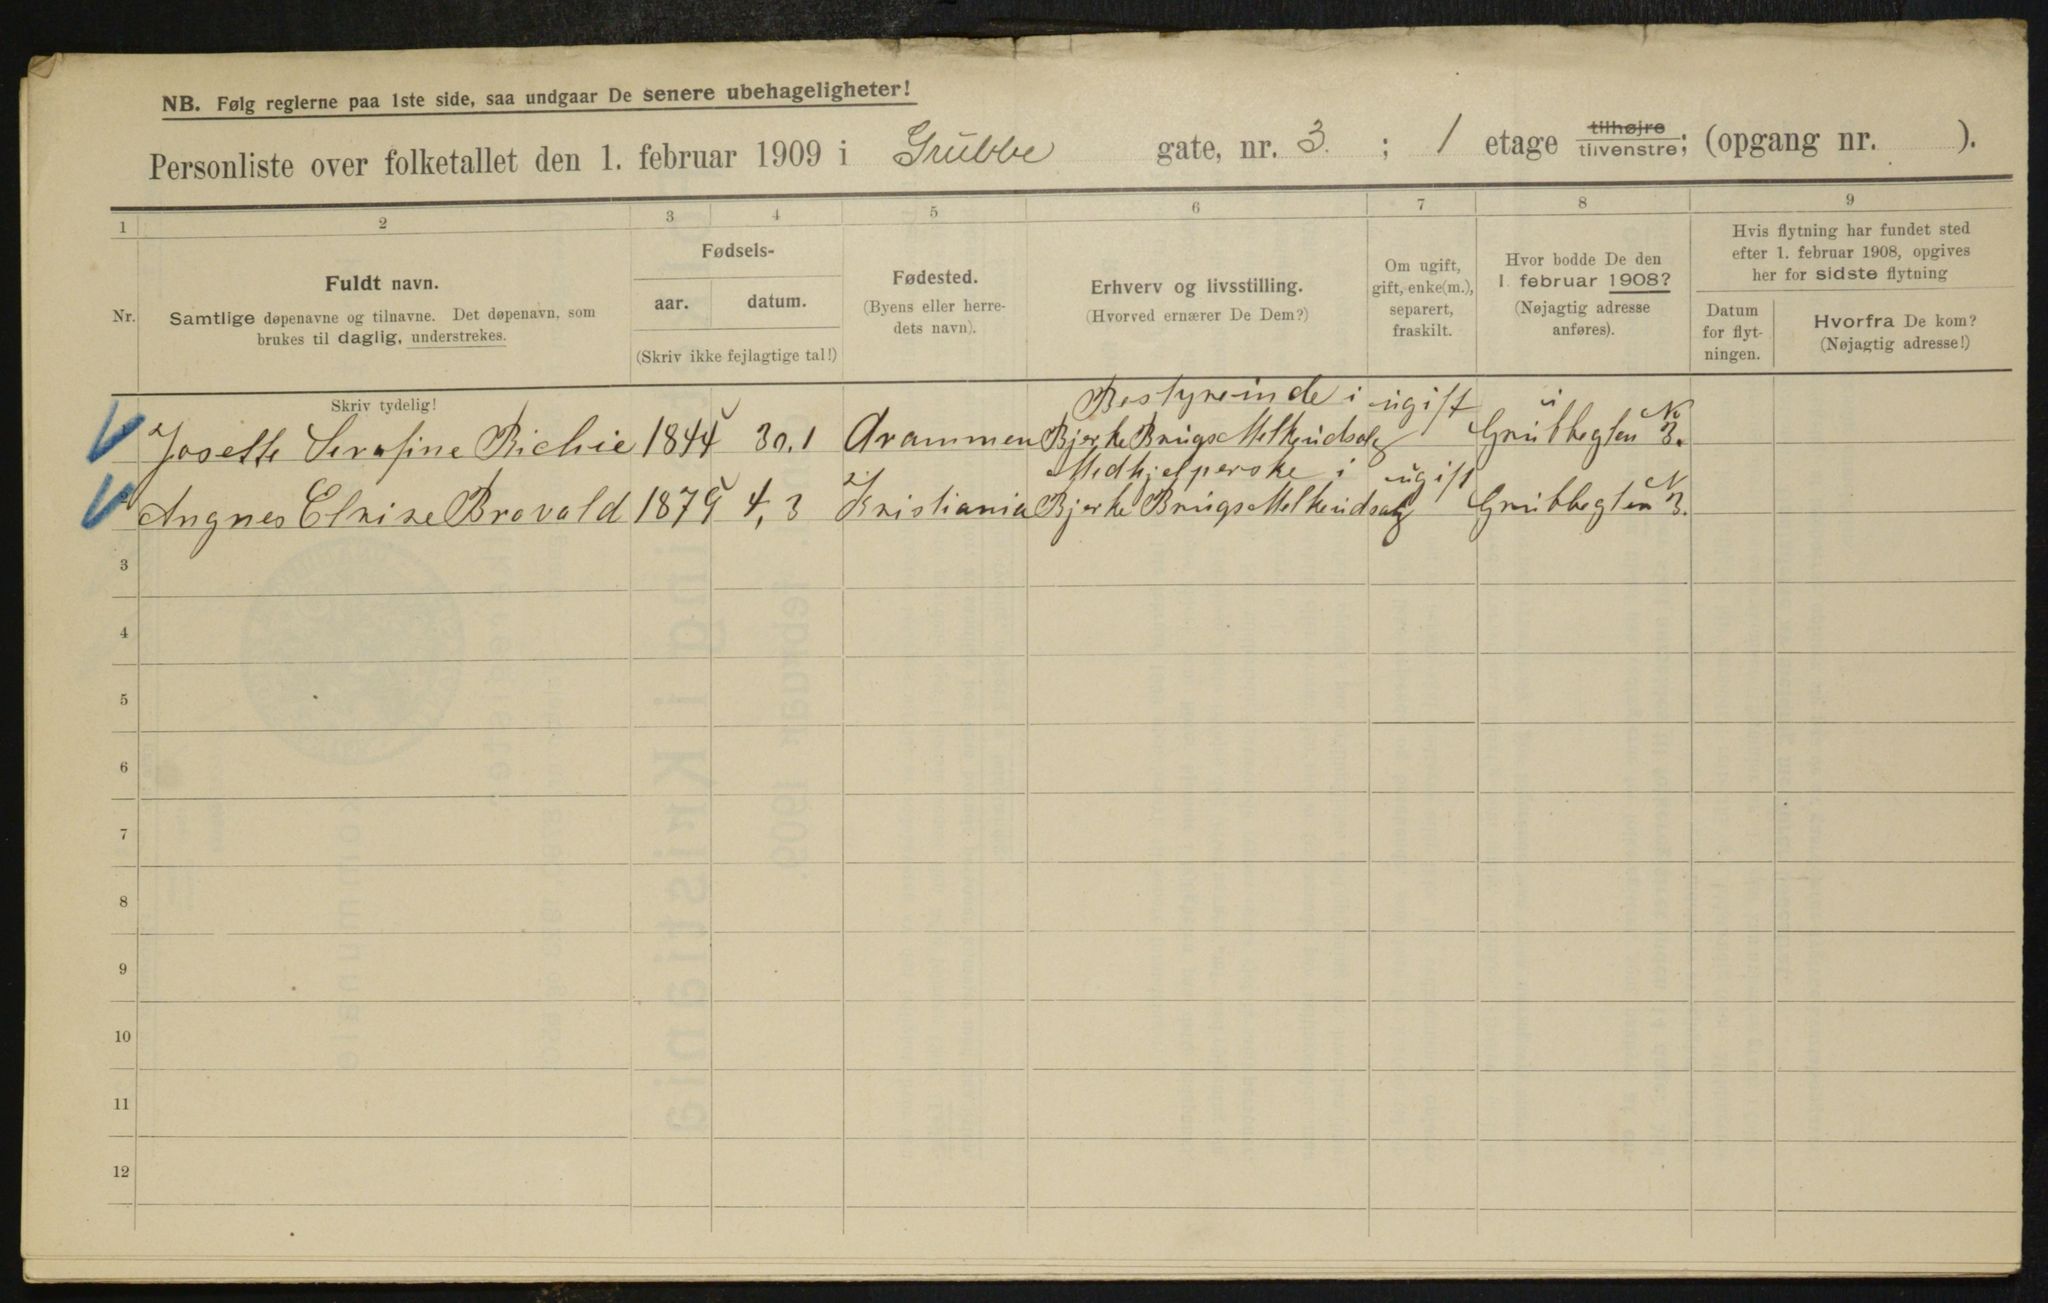 NB. Følg reglerne paa 1ste side, saa undgaar De senere ubehageligheter!
Personliste over folketallet den 1. februar 1909 i Grübbe gate, nr. 3. ; 1 etage tilhøjre tilvenstre; (opgang nr. ).
1 2 3 4 5 6 7 8 9
Nr.
Fuldt navn.
Samtlige døpenavne og tilnavne. Det døpenavn, som
brukes til daglig, understrekes.
Fødsels-
aar. datum.
(Skriv ikke fejlagtige tal!)
Fødested.
(Byens eller herre-
dets navn).
Erhverv og livsstilling.
(Hvorved ernærer De Dem?)
Om ugift,
gift, enke(m.),
separert,
fraskilt.
Hvor bodde De den
1. februar 1908?
(Nøjagtig adresse
anføres).
Hvis flytning har fundet sted
efter 1. februar 1908, opgives
her for sidste flytning
Datum
for flyt-
ningen.
Hvorfra De kom?
(Nøjagtig adresse!)
Skriv tydelig!
Bestyreinde i ugift
Josette Serafine Richie 1844 30.1 Drammen Bjerke Brugs Melkeudsalg Grübbegten No 3.
Medhjelperske i ugift
Angnes Elvine Brovold 1879 4,3 Kristiania Bjerke Brugs Melkeudsalg Grübbegten N 3.
3
4
5
6
7
8
9
10
11
12